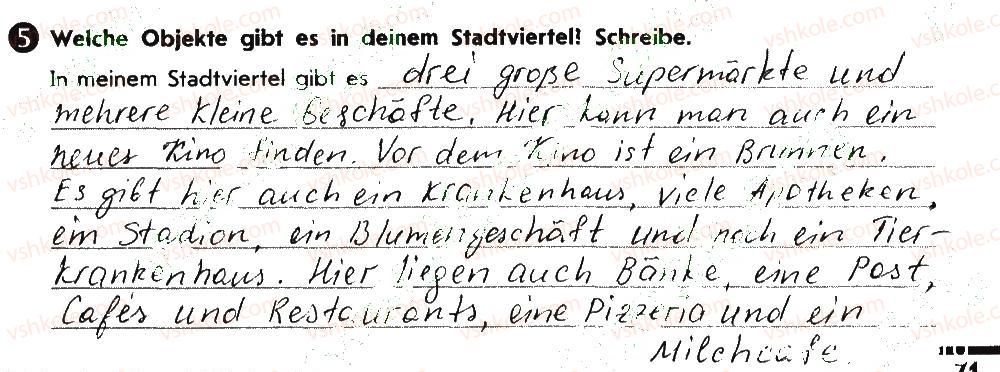 5 Welche Objekte gibt es in deinem Stadtviertel? Schreibe.
In meinem Stadtviertel gibt es drei große Supermärkte und
mehrere kleine Geschäfte. Hier kann man auch ein
neues Kino finden. Vor dem Kino ist ein Brunnen.
Es gibt hier auch ein Krankenhaus, viele Apotheken,
ein Stadion, ein Blumengeschäft und noch ein Tier-
krankenhaus. Hier liegen auch Bänke, eine Post,
Cafés und Restaurants, eine Pizzeria und ein
Milchcafe.
71